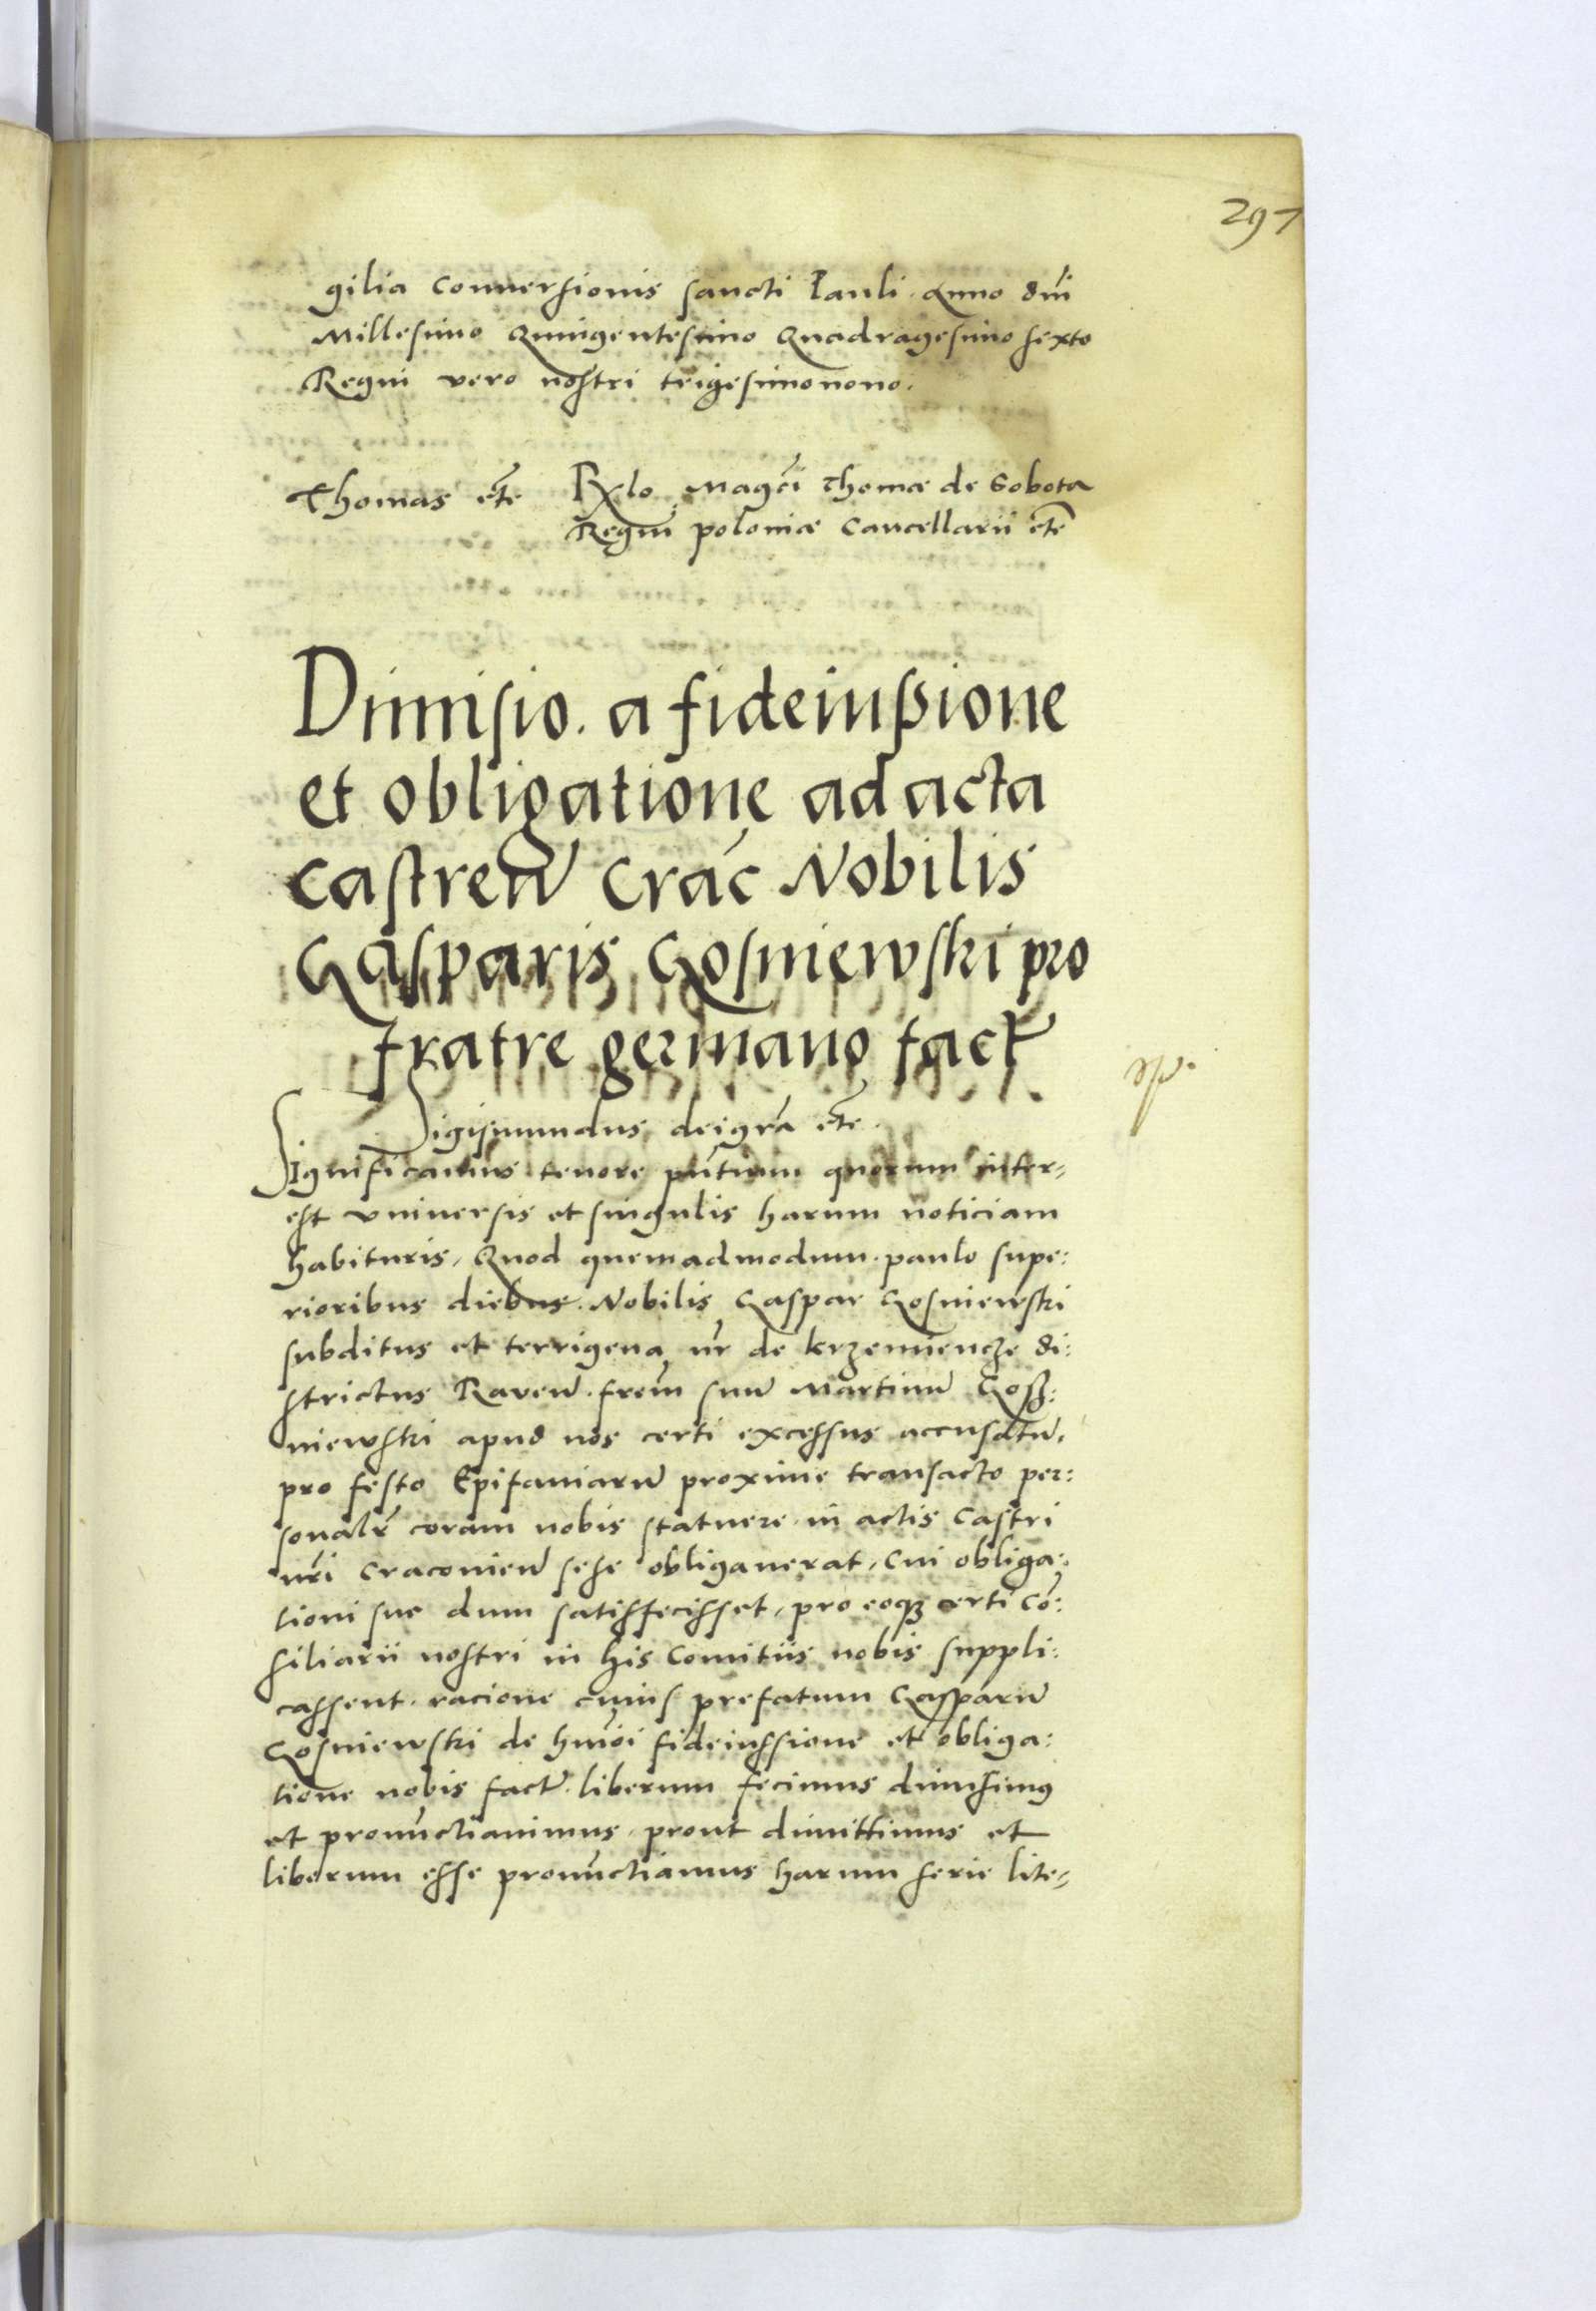 297
gilia Conuersionis sancti Pauli. Anno dni
Millesimo Quingentesimo Quadragesimo sexto
Regni vero nostri trigesimonono.
Thomas etc Rlo Magci Thomæ de Sobota
Regni poloniæ Cancellarii etc
Dimisio. a fideiussione
et obligatione ad acta
castren Crac Nobilis
Gasparis Gosniewski pro
fratre germano fact
Sigismundus dei gra etc.
Significamus tenore pntium quorum inter-
est vniuersis et singulis harum noticiam
habituris, Quod quemadmodum. paulo supe:
rioribus diebus. Nobilis Gaspar Gosniewski
subditus et terrigena nr de krzemiencze di:
strictus Rauen. frem suu Martinu Gosz:
niewski apud nos certi excessus accusatu,
pro festo Epifaniaru proxime transacto per:
sonalr coram nobis statuere in actis Castri
nri Cracouien sese obligauerat, Cui obliga:
tioni sue dum satisfecisset, pro eoque certi Co:
siliarii nostri in his Comitiis nobis suppli:
cassent. racione cuius prefatum Gasparu
Gosniewski de hmoi fideiussione et obliga:
tione nobis fact. liberum fecimus dimisimus
et pronuctiauimus. prout dimittimus et
liberum esse pronuctiamus harum serie lite-